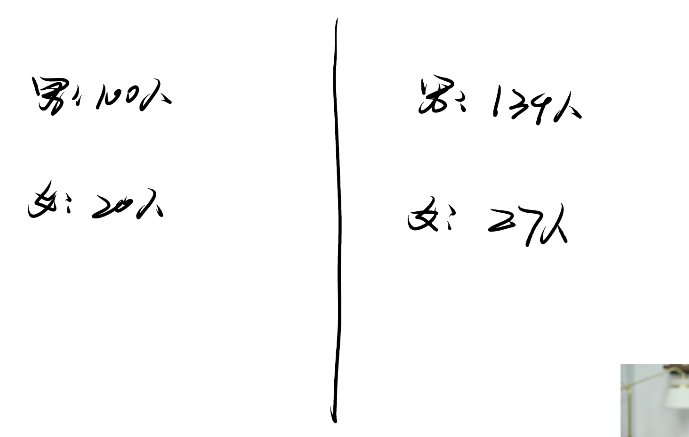 男：100人
女：20人
男：134人
女：27人